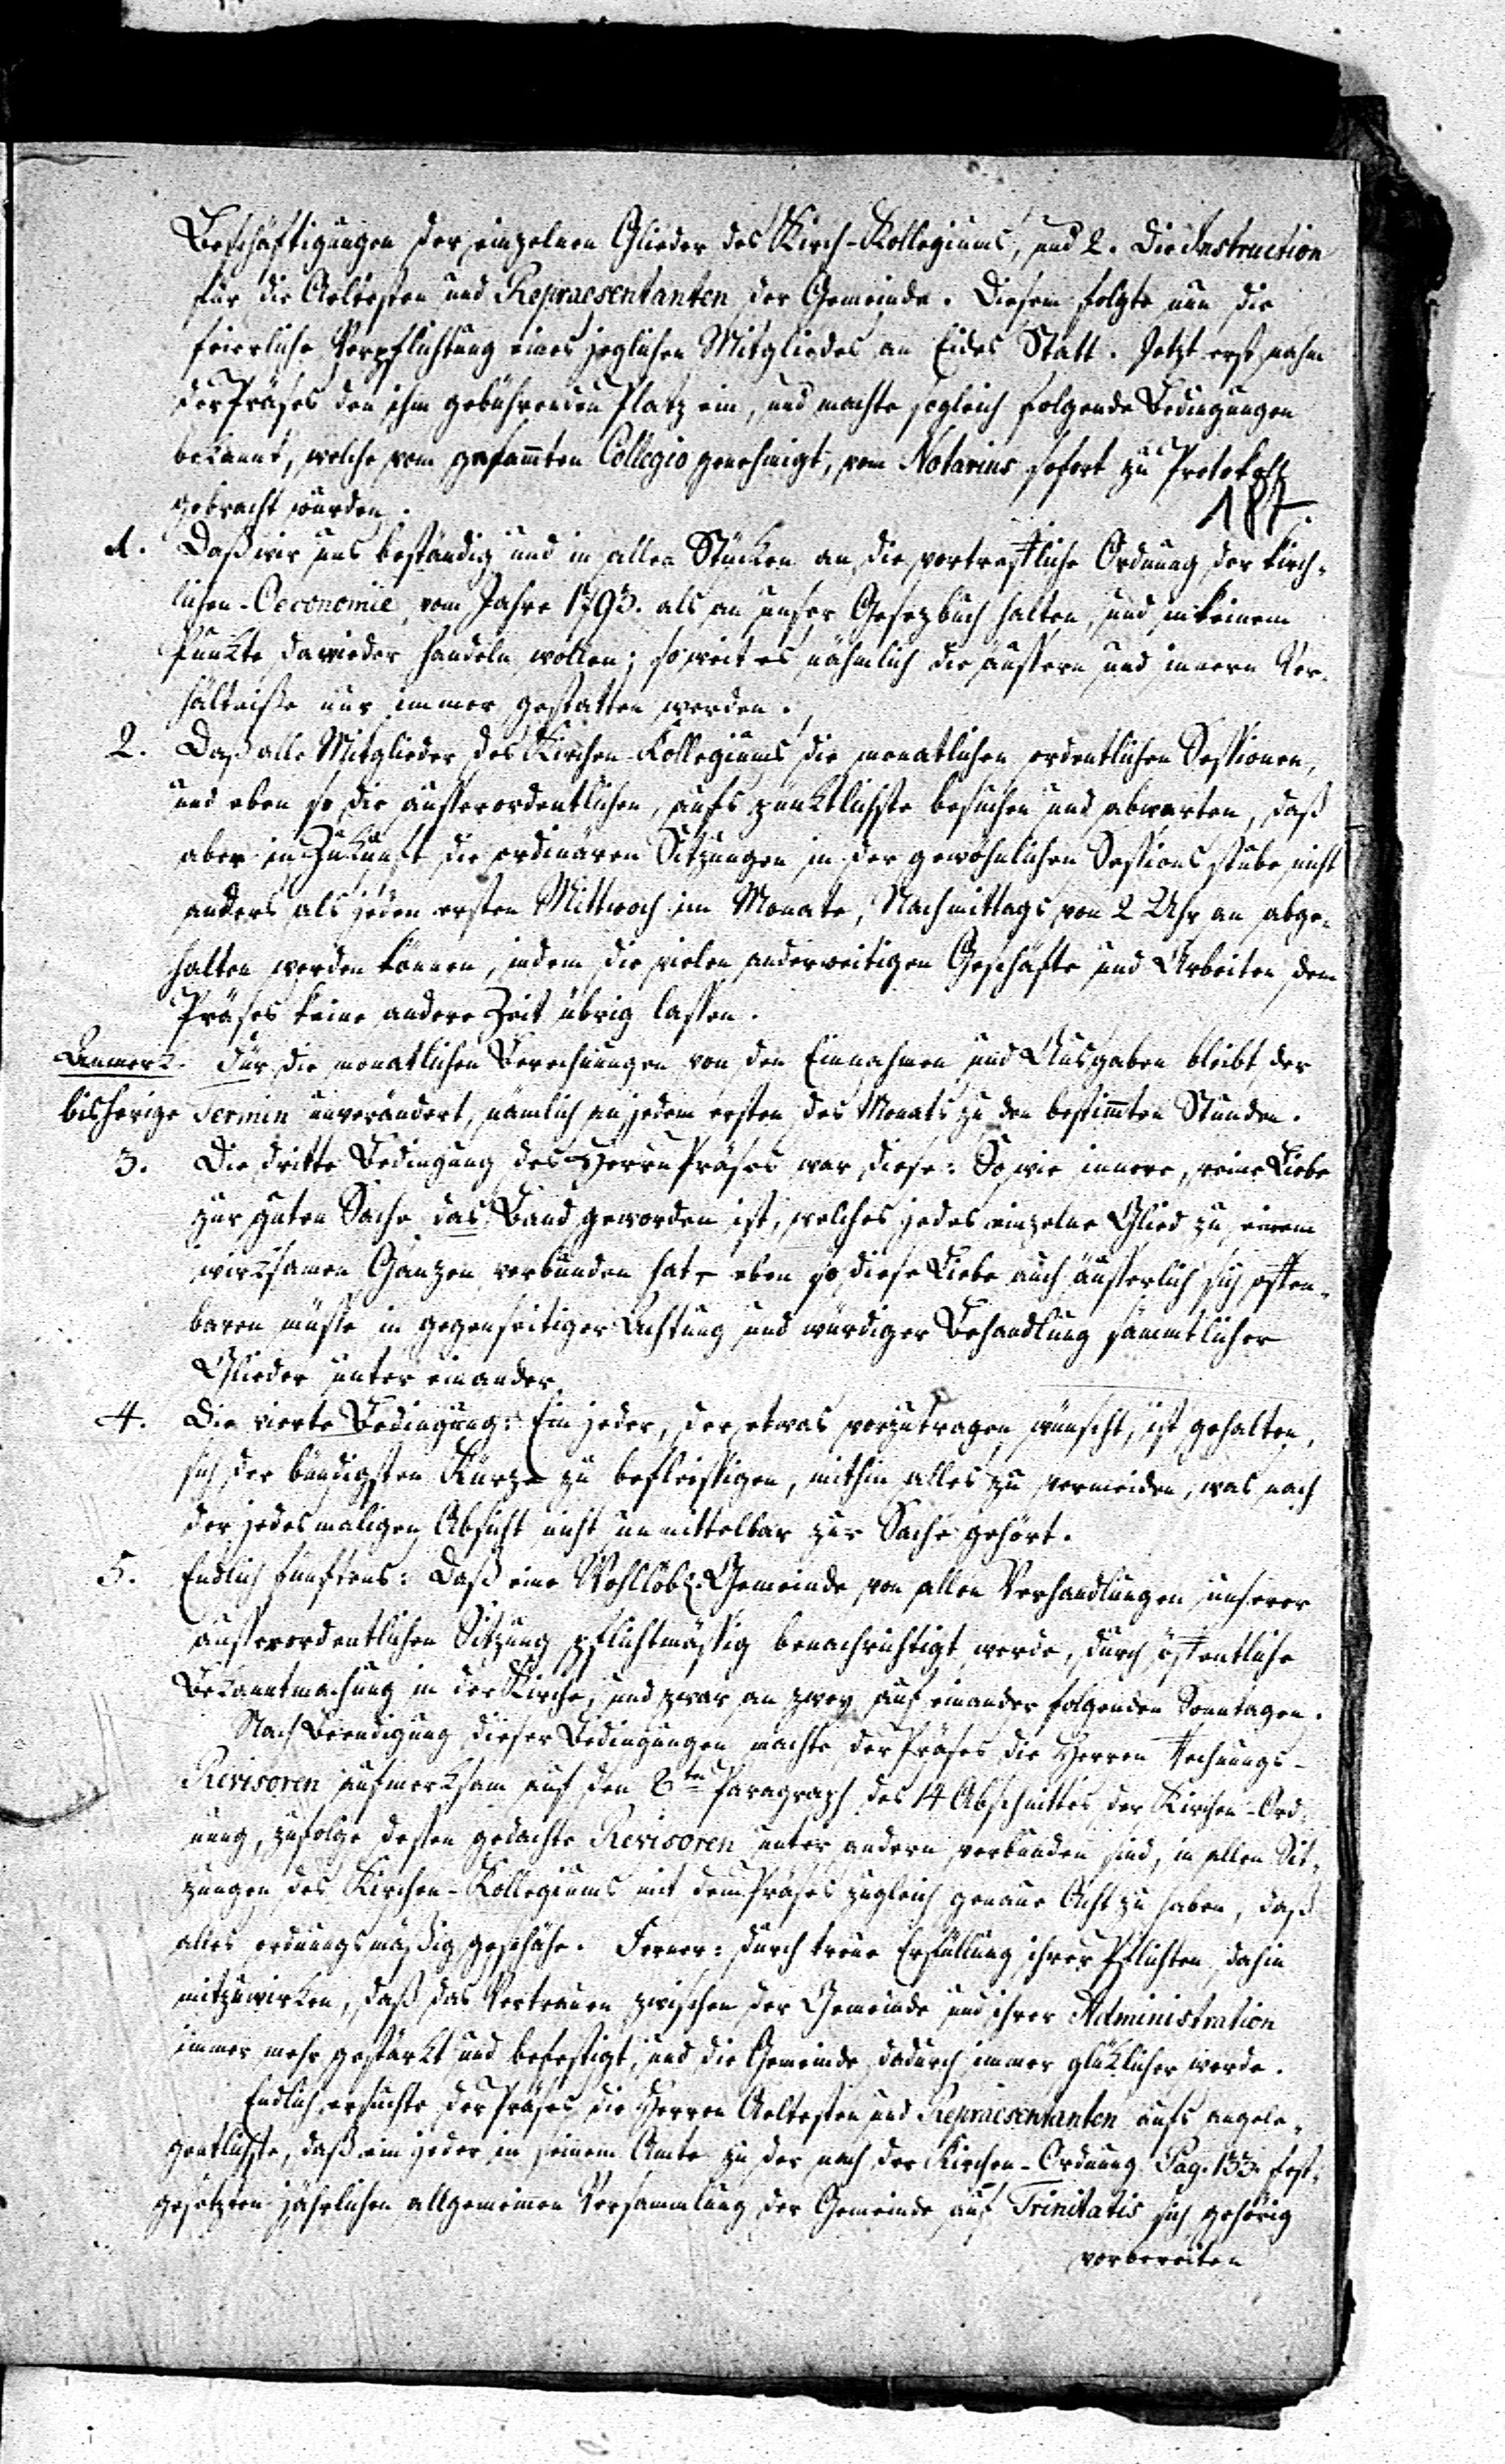 Beschäftigungen der einzelnen Glieder des Kirch-Kollegiums, und 2. Die Instruction
für die Aeltesten und Repraesentanten der Gemeinde. Diesem folgte nun die
feierliche Verpflichtung eines jeglichen Mitgliedes an Eides Statt. Jetzt erst nahm
der Präses den ihm gebührenden Platz ein, und machte sogleich folgende Bedingungen
bekannt, welche vom gesam̄ten Collegio genehmigt, vom Notarius sofort zu Protokoll
gebracht wurden.
187
1. Daß wir uns beständig und in allen Stücken an die vortreffliche Ordnung der kirch-
lichen-Oeconomie vom Jahre 1793. als an unser Gesezbuch halten, und in keinem
Punkte dawieder handeln wollen; so weit es nähmlich die äussern und innern Ver-
hältniße nur immer gestatten werden.
2. Daß alle Mitglieder des Kirchen-Kollegiums die monatlichen ordentlichen Sessionen,
und eben so die ausserordentlichen, aufs pünktlichste besuchen und abwarten, daß
aber in Zukunft die ordinären Sitzungen in der gewöhnlichen Sessions stube nicht
anders als jeden ersten Mittwoch im Monate, Nachmittags von 2 Uhr an abge-
halten werden können, indem die vielen anderweitigen Geschäfte und Arbeiten dem
Präses keine andere Zeit übrig lassen.
Anmerk. Für die monatlichen Berechnungen von den Einnahmen und Ausgaben bleibt der
bisherige Termin unverändert, nämlich an jedem ersten des Monats zu den bestim̄ten Stunden.
3. Die dritte Bedingung des Herrn Präses war diese: So wie innere, reine Liebe
zur guten Sache das Band geworden ist, welches jedes einzelne Glied zu einem
wirksamen Ganzen verbunden hat, eben so diese Liebe auch äusserlich sich offen-
baren müsse in gegenseitiger Achtung und würdiger Behandlung sämmtlicher
Glieder unter einander.
4. Die vierte Bedingung: Ein jeder, der etwas vorzutragen wünscht, ist gehalten,
sich der bündigsten Kürze zu befleissigen, mithin alles zu vermeiden, was nach
der jedesmaligen Absicht nicht unmittelbar zur Sache gehört.
5. Endlich fünftens: Daß eine Wohllöbl. Gemeinde von allen Verhandlungen unserer
ausserordentlichen Sitzung pflichtmässig benachrichtigt werde, durch öffentliche
Bekanntmachung in der Kirche, und zwar an zwey auf einander folgenden Sonntagen.
Nach Beendigung dieser Bedingungen machte der Präses die Herren Rechnungs-
Revisoren aufmerksam auf den 6ten Paragraph des 14 Abschnittes der Kirchen-Ord-
nung, zufolge dessen gedachte Revisoren unter andern verbunden sind, in allen Sit-
zungen des Kirchen-Kollegiums mit dem Präses zugleich genaue Acht zu haben, daß
alles ordnungsmäßig geschähe. Ferner: durch treue Erfüllung ihrer Pflichten dahin
mitzuwirken, daß das Vertrauen zwischen der Gemeinde und ihrer Administration
immer mehr gestärkt und befestigt, und die Gemeinde dadurch immer glüklicher werde.
Endlich ersuchte der Präses die Herren Aeltesten und Repraesentanten aufs angele-
gentlichste, daß ein jeder in seinem Amte zu der nach der Kirchen-Ordnung Pag. 133. fest-
gesetzten jährlichen allgemeinen Versammlung der Gemeinde auf Trinitatis sich gehörig
vorbereiten